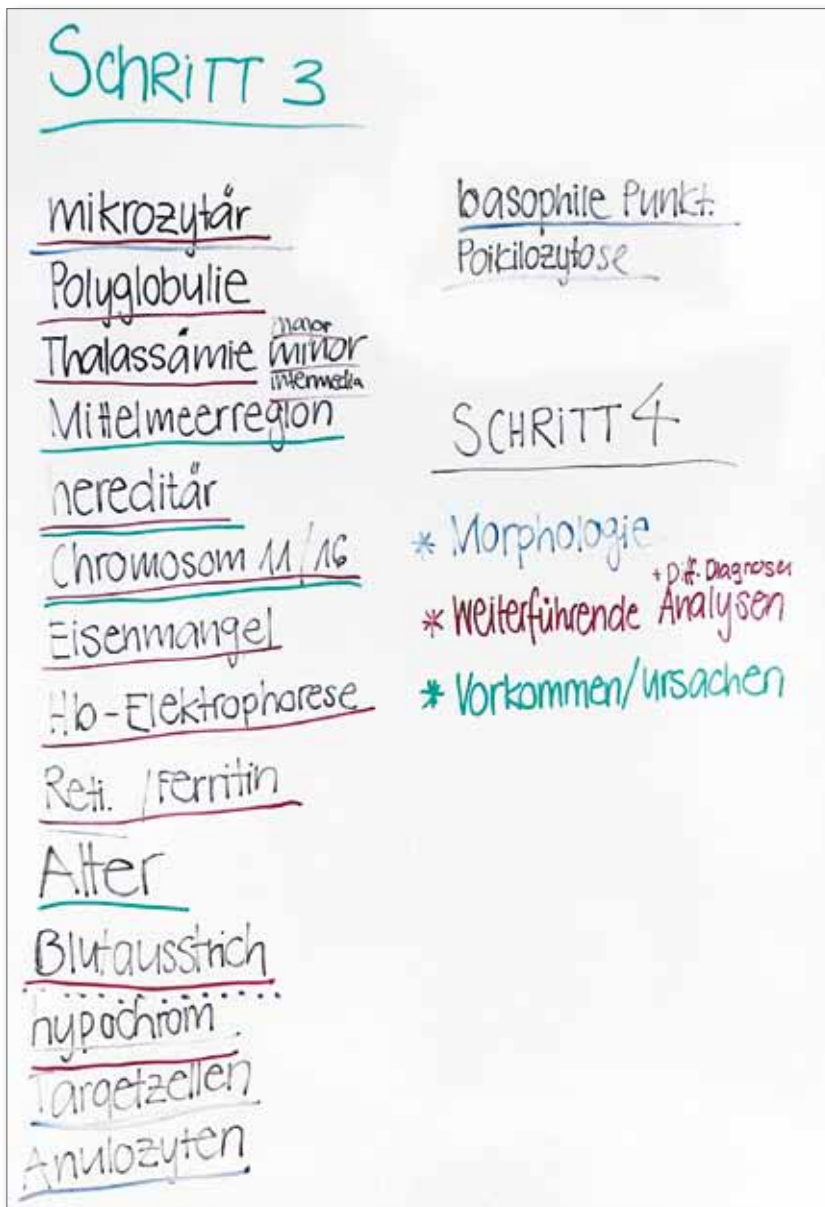 SCHRITT 3
mikrozytär
Polyglobulie
Thalassämie major
minor
intermedia
Mittelmeerregion
hereditär
Chromosom 11/16
Eisenmangel
Hb-Elektrophorese
Reti. / Ferritin
Alter
Blutausstrich
hypochrom
Targetzellen
Anulozyten
basophile Punkt.
Poikilozytose
SCHRITT 4
* Morphologie
+ Diff. Diagnosen
* Weiterführende Analysen
* Vorkommen/Ursachen